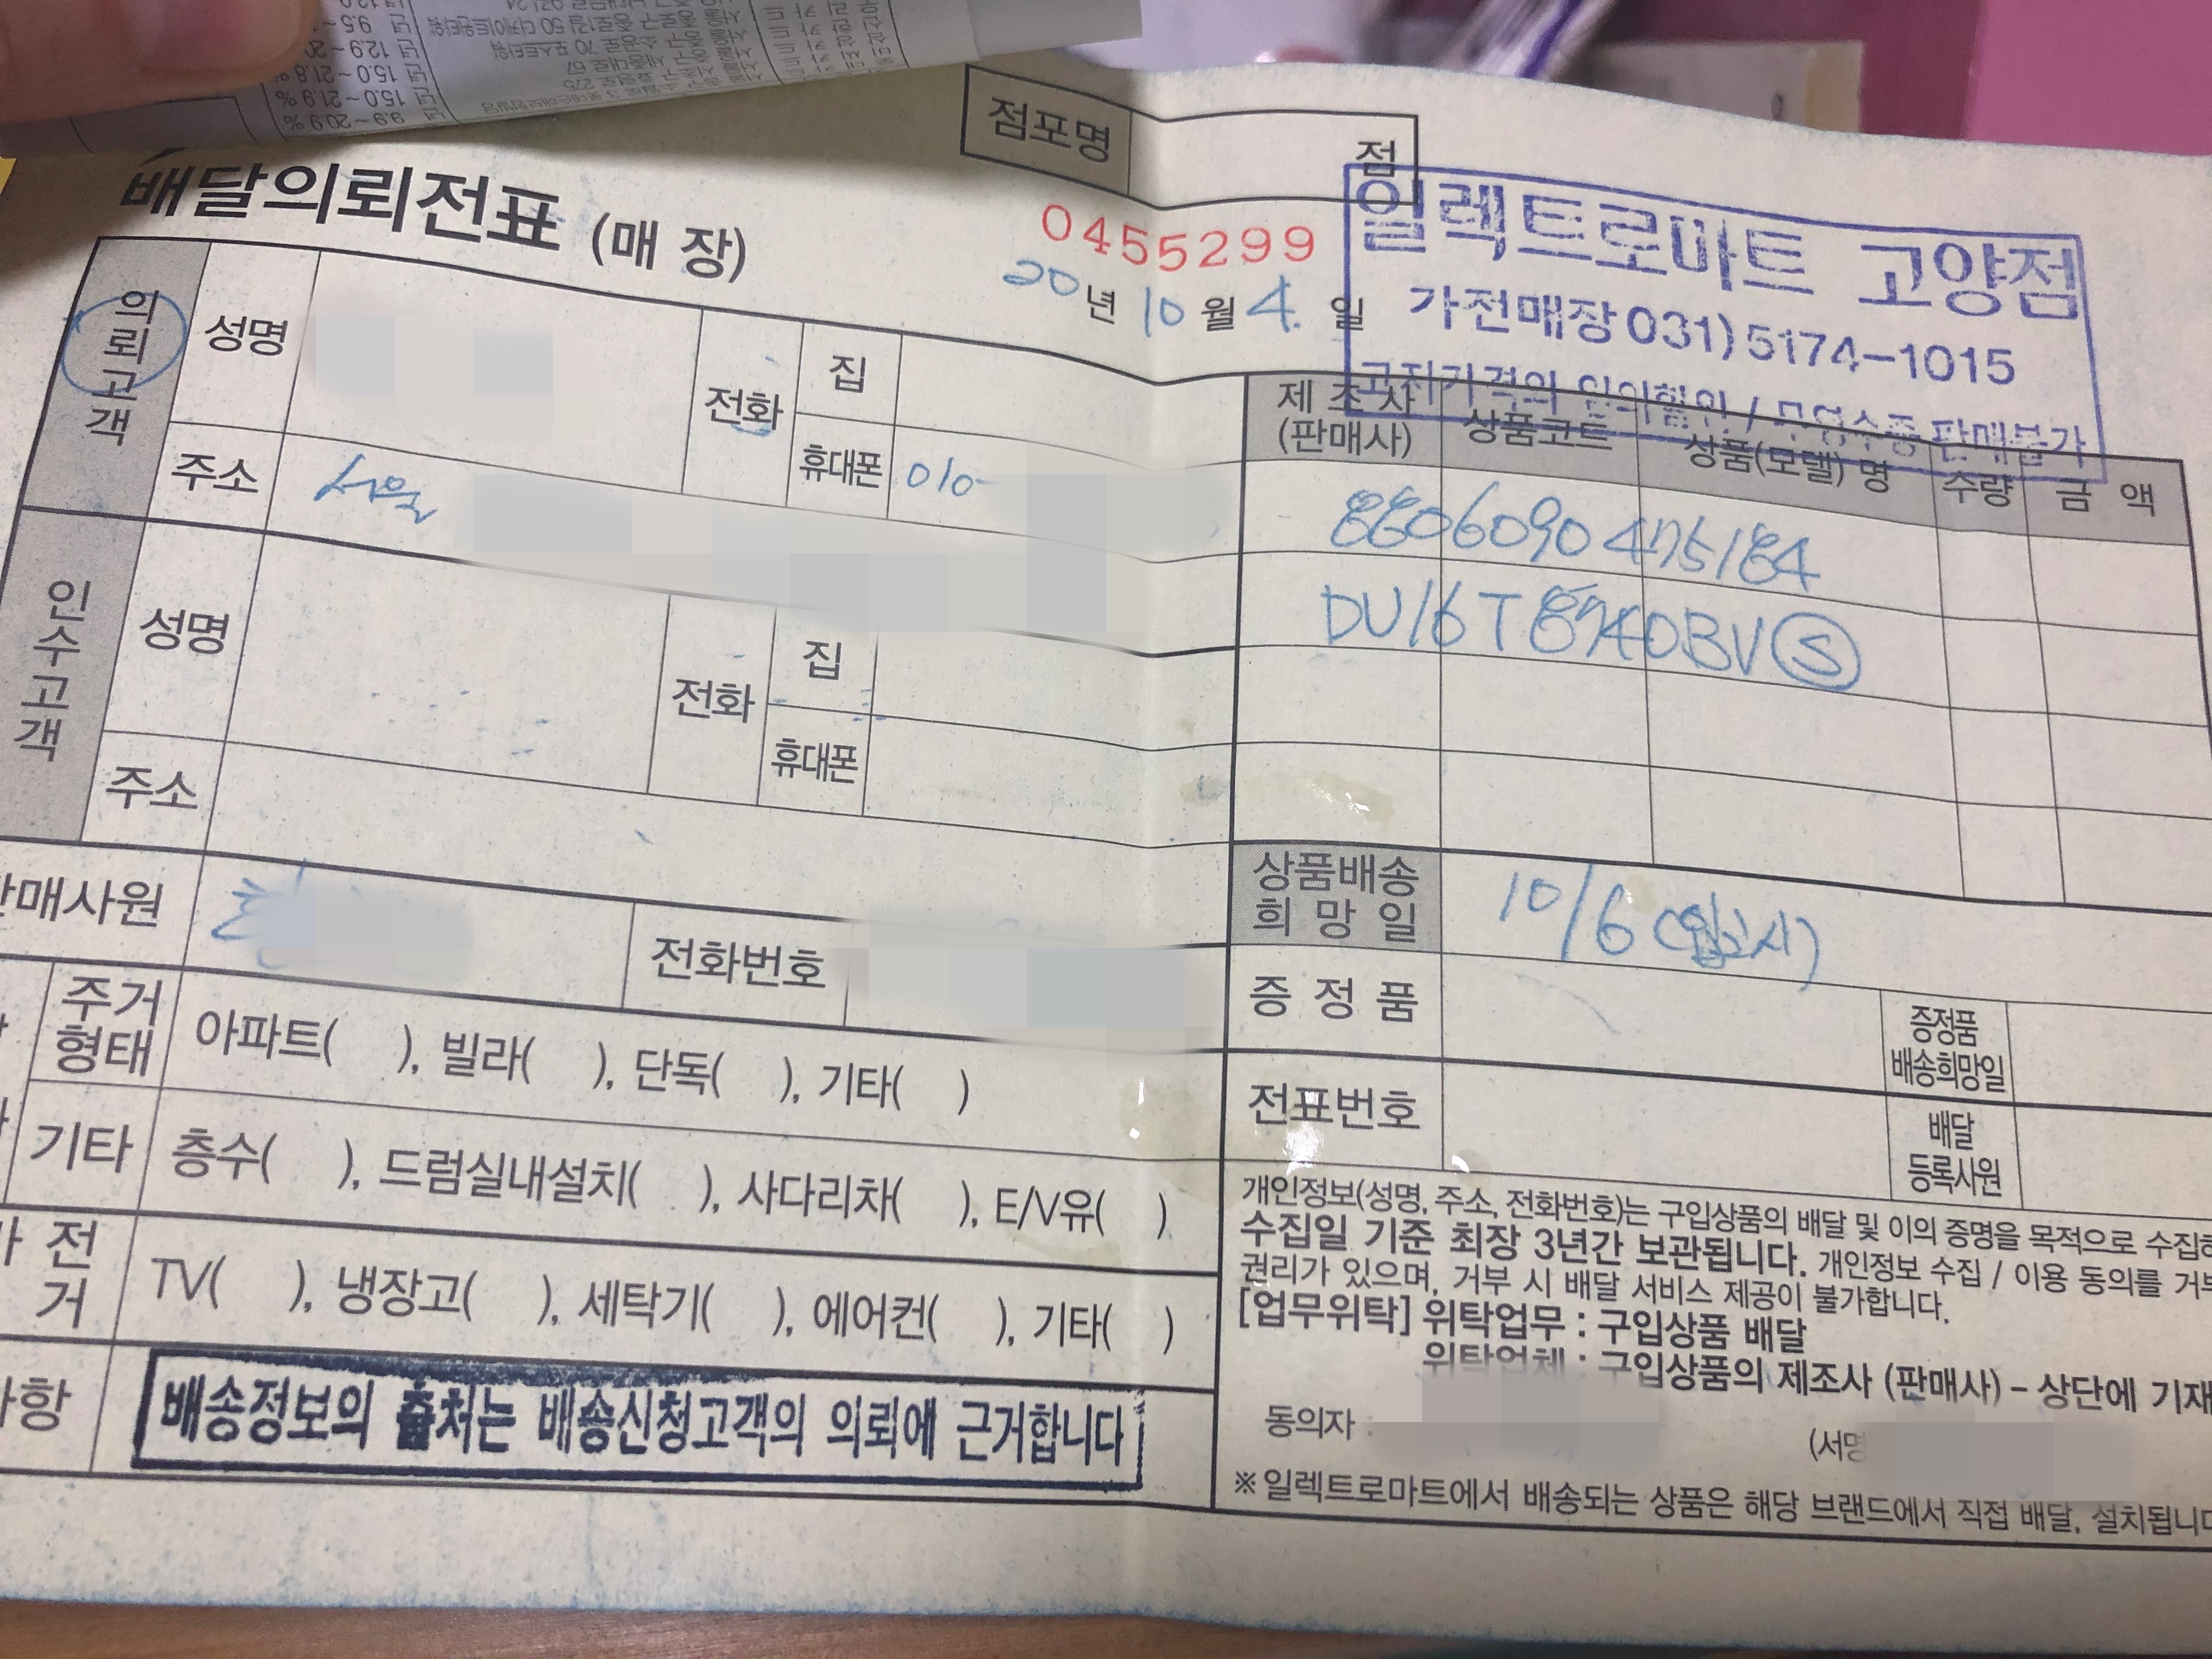 점포명 점
배달의뢰전표 (매 장)
0455299
20년 10월 4. 일
일렉트로마트 고양점
가전매장 031) 5174-1015
고지가격의 임의할인 / 무영수증 판매불가
의뢰고객
성명
전화
집
휴대폰 010-
주소 서울
인수고객
성명
전화
집
휴대폰
주소
판매사원
전화번호
주거형태
아파트( ), 빌라( ), 단독( ), 기타( )
기타
층수( ), 드럼실내설치( ), 사다리차( ), E/V유( )
전
거
TV( ), 냉장고( ), 세탁기( ), 에어컨( ), 기타( )
항
배송정보의 출처는 배송신청고객의 의뢰에 근거합니다
제 조 사
(판매사)
상품코드
상품(모델) 명
수량
금 액
8806090475184
DU16T8740BV Ⓢ
상품배송
희 망 일
10/6 (입고시)
증 정 품
증정품
배송희망일
전표번호
배달
등록사원
개인정보(성명, 주소, 전화번호)는 구입상품의 배달 및 이의 증명을 목적으로 수집하
수집일 기준 최장 3년간 보관됩니다. 개인정보 수집 / 이용 동의를 거부
권리가 있으며, 거부 시 배달 서비스 제공이 불가합니다.
[업무위탁] 위탁업무 : 구입상품 배달
위탁업체 : 구입상품의 제조사 (판매사) – 상단에 기재
동의자 :
(서명
※ 일렉트로마트에서 배송되는 상품은 해당 브랜드에서 직접 배달, 설치됩니다